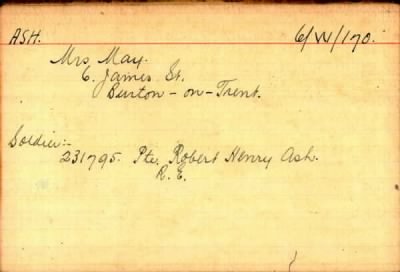 ASH. 6/W/170.
Mrs May.
6. James St.
Burton-on-Trent.
Soldier:-
231795. Pte. Robert Henry Ash.
R.E.